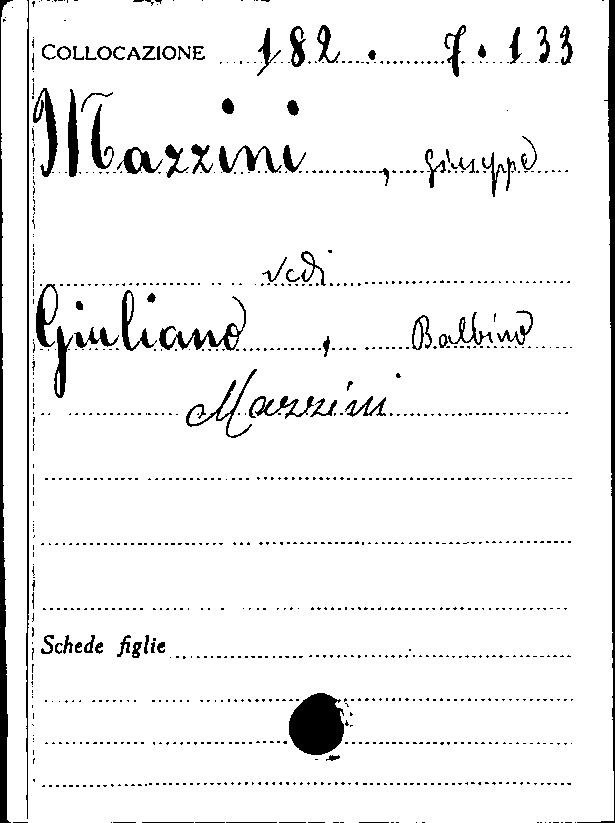 COLLOCAZIONE 182. 7.133
Mazzini, Giuseppe
vedi
Giuliano, Balbino
Mazzini
Schede figlie